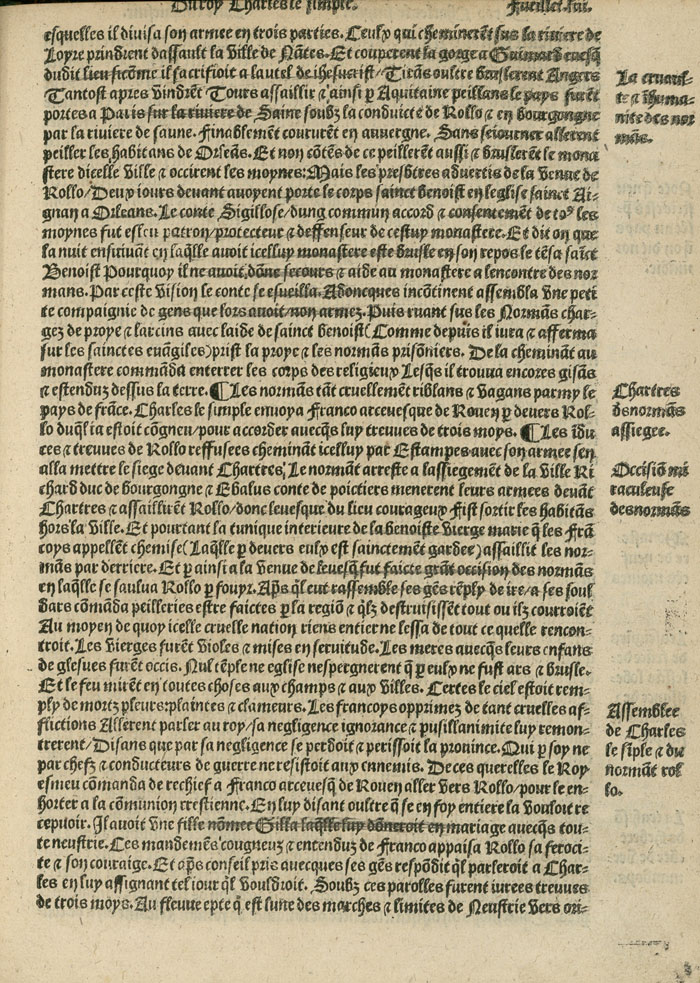 Du roy Charles le simple. Fueillet. lvi.
esquelles il divisa son armee en trois parties. Ceulx qui cheminerẽt sus la riviere de
Loyre prindrent dassault la ville de Nãtes. Et couperent la gorge a Guimard evesq̃
dudit lieu sicõme il sacrifioit a lautel de ihesucrist / Tirãs oultre bruslerent Angers
Tantost apres vindrẽt Tours assaillir ⁊ ainsi ꝑ Aquitaine peillans le pays furẽt
portes a Paris sur la riviere de Saine soubz la conduicte de Rollo ⁊ en bourgongne
par la riviere de saune. Finablemẽt coururẽt en auvergne. Sans sejourner allerent
peiller les habitans de Orleãs. Et non cõtẽs de ce peillerẽt aussi ⁊ bruslerẽt le mona
stere dicelle ville ⁊ occirent les moynes: Mais les presbtres advertis de la venue de
Rollo / Deux jours devant avoyent porte le corps sainct benoist en leglise sainct Ai-
gnan a Orleans. Le conte Sigillose / dung commun accord ⁊ consentemẽt de toꝰ les
moynes fut esleu patron / protecteur ⁊ deffenseur de cestuy monastere. Et dit on que
la nuit ensuivant en laq̃lle avoit icelluy monastere este brusle en son repos le tẽsa saĩct
Benoist Pourquoy il ne avoit dõne secours ⁊ aide au monastere a lencontre des nor
mans. Par ceste vision le conte se esveilla. Adoncques incõtinent assembla vne peti
te compaignie de gens que lors avoit / non armez. Puis ruant sus les Normãs char-
gez de proye ⁊ larcins avec laide de sainct benoist (Comme depuis il iura ⁊ afferma
sur les sainctes evãgiles) prist la proye ⁊ les normãs prisõniers. De la cheminãt au
monastere commãda enterrer les corps des religieux Lesq̃ls il trouva encores gisãs
⁊ estenduz dessus la terre. ¶ Les normãs tãt cruellemẽt riblans ⁊ vagans parmy le
pays de frãce. Charles le simple envoya Franco arcevesque de Rouen ꝑ devers Rol-
lo duq̃l ia estoit cõgneu / pour accorder avecq̃s luy treuves de trois moys. ¶ Les idu
ces ⁊ treuves de Rollo reffusees cheminãt icelluy par Estampes avec son armee sen
alla mettre le siege devant Chartres, Le normãt arreste a lassiegement de la ville Ri
chard duc de bourgongne ⁊ Ebalus conte de poictiers menerent leurs armees devãt
Chartres ⁊ assaillirẽt Rollo / donc levesque du lieu courageux Fist sortir les habitãs
hors la ville. Et pourtant la tunique interieure de la benoiste vierge marie q̃ les Frã
coys appellẽt chemise (Laq̃lle ꝑ devers eulx est sainctement gardee) assaillit les nor-
mãs par derriere. Et ꝑ ainsi a la venue de levesq̃ fut faicte grãt occision des normãs
en laq̃lle se saulva Rollo ꝑ fouyr. Apr̃s q̃l eut rassemble ses gẽs rẽply de ire / a ses soul
dars cõmãda peilleries estre faictes ꝑ la regiõ ⁊ q̃lz destruisissẽt tout ou ilz courroiẽt
Au moyen de quoy icelle cruelle nation riens entier ne lessa de tout ce quelle rencon-
troit. Les vierges furẽt violes ⁊ mises en servitude. Les meres avecq̃s leurs enfans
de glesves furẽt occis. Nul tẽple ne eglise nespergnerent q̃ ꝑ eulx ne fust ars ⁊ brusle.
Et le feu mirẽt en toutes choses aux champs ⁊ aux villes. Certes le ciel estoit rem-
ply de mortz pleurs / plaintes ⁊ clameurs. Les francoys opprimez de tant cruelles af-
flictions Allerent parler au roy / sa negligence ignorance ⁊ pusillanimite luy remon-
trerent / Disans que par sa negligence se perdoit ⁊ perissoit la province. Qui ꝑ soy ne
par chefz ⁊ conducteurs de guerre ne resistoit aux ennemis. De ces querelles le Roy
esmeu cõmãda de rechief a Franco arcevesq̃ de Rouen aller vers Rollo / pour le en-
horter a la cõmunion crestienne. En luy disant oultre q̃ se en foy entiere la vouloit re
cepvoir. Il avoit vne fille nõmee Gilla laq̃lle luy dõneroit en mariage avecq̃s tou-
te neustrie. Ces mandemẽs cougneuz ⁊ entenduz de Franco appaisa Rollo sa feroci-
te ⁊ son couraige. Et apr̃s conseil pris avecques ses gẽs respõdit q̃l parleroit a Char-
les en luy assignant tel iour q̃l vouldroit. Soubz ces parolles furent iurees treuves
de trois moys. Au fleuve epte q̃ est lune des marches ⁊ limites de Neustrie vers ori-
La cruaul-
te ⁊ ĩhuma-
nite des nor
mãs.
Chartres
ds normãs
assiegee.
Occisiõ mi
raculeuse
des normãs
Assemblee
de Charles
le sĩple ⁊ du
normãt rol
lo.